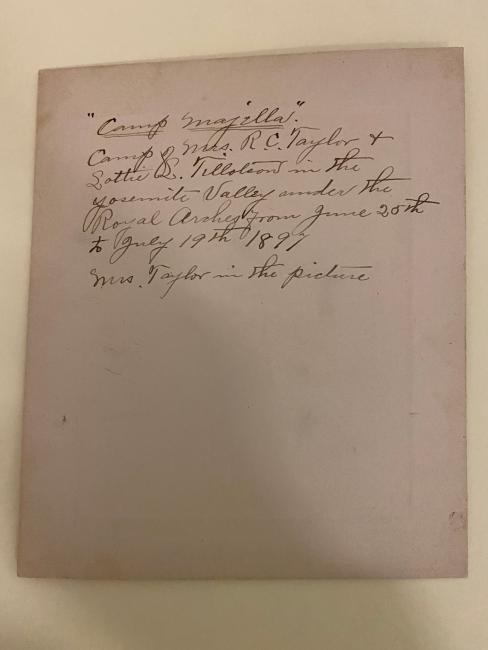 "Camp Majella".
Camp of Mrs. R. C. Taylor &
Lottie B. Tillotson in the
Yosemite Valley under the
Royal Arches from June 25th
to July 19th 1897
Mrs. Taylor in the picture